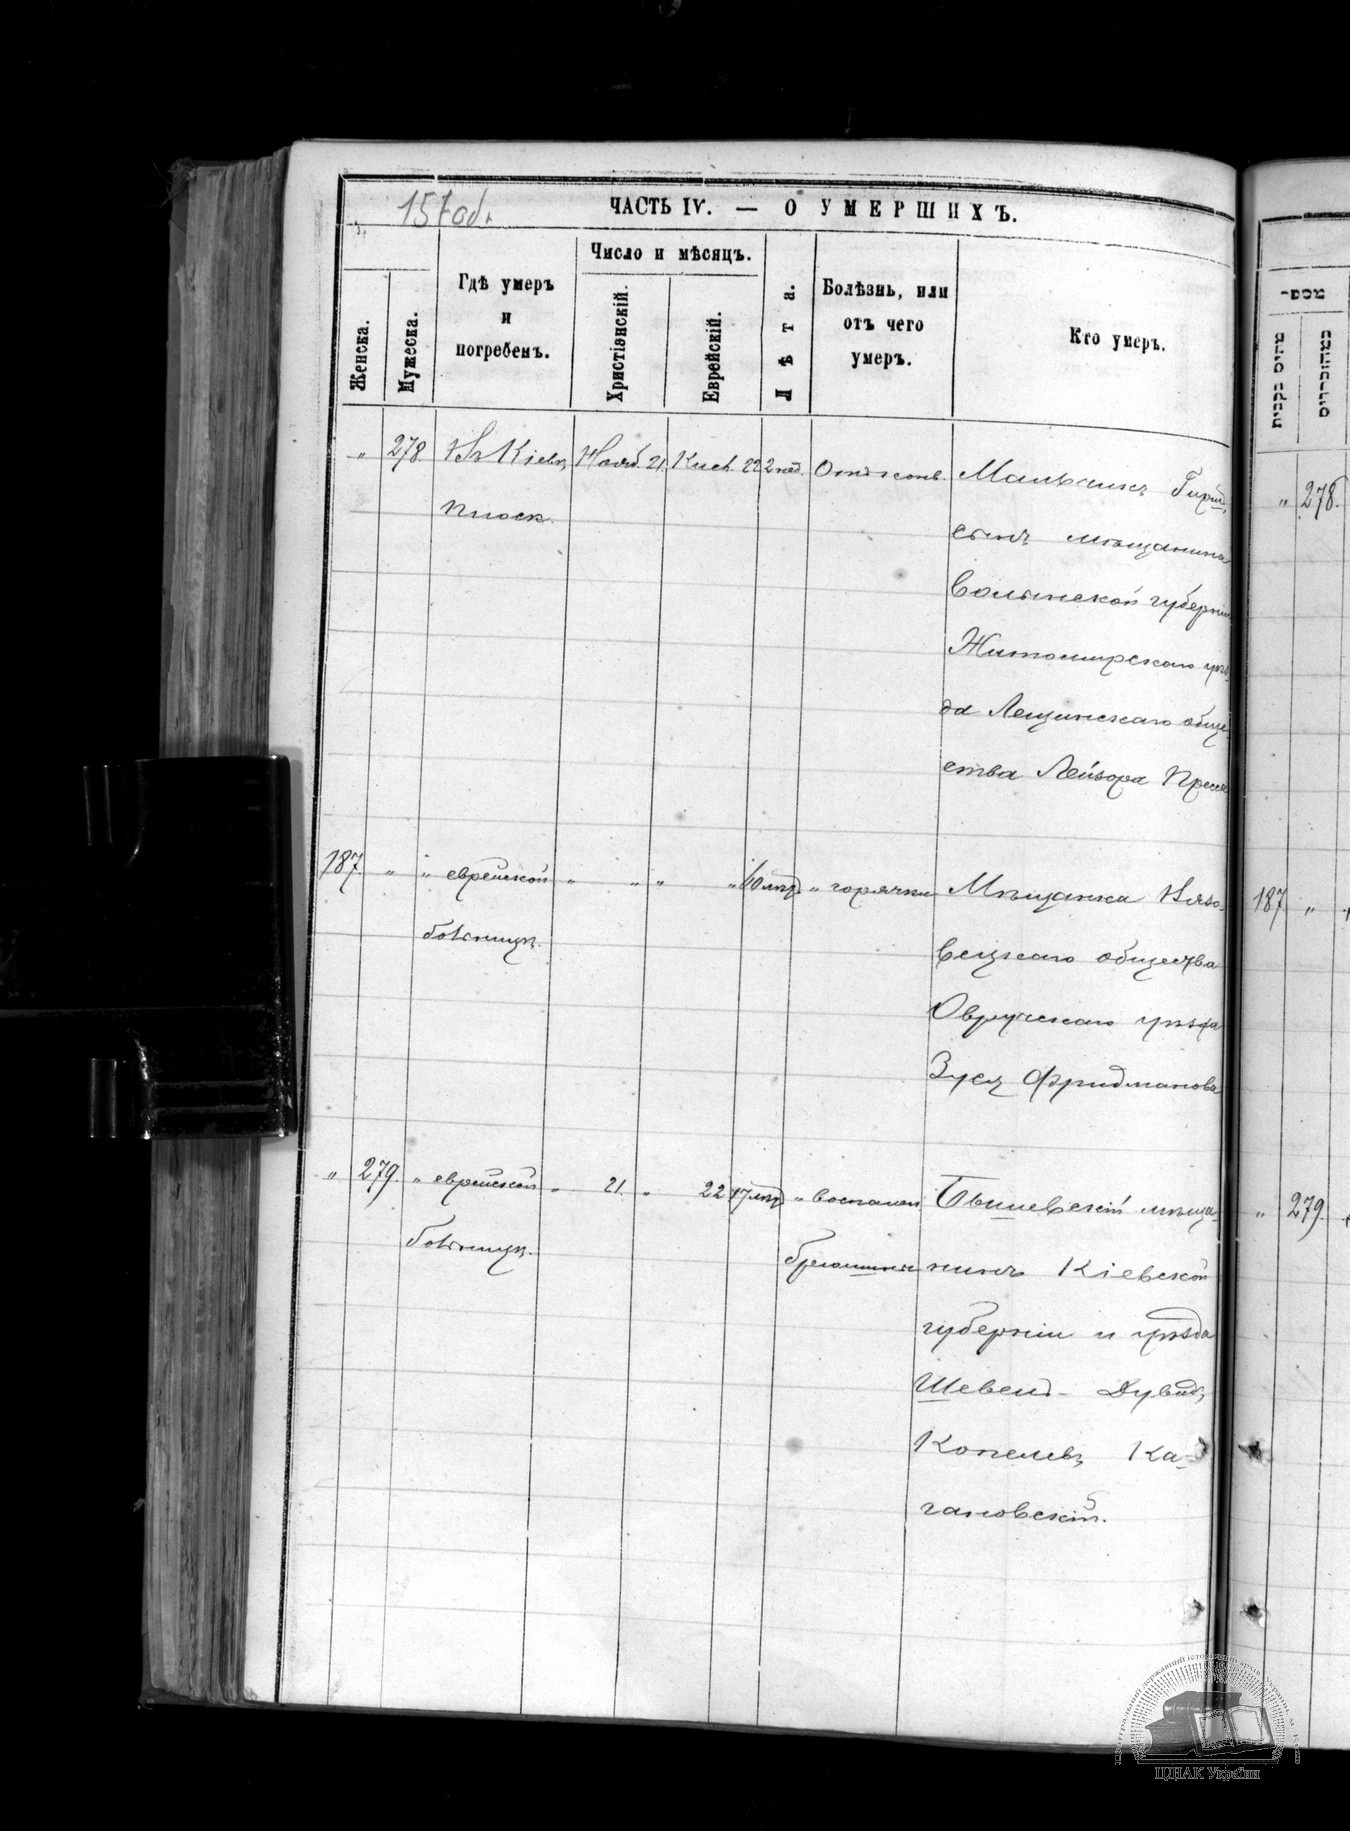 157 об.
ЧАСТЬ IV. — О УМЕРШИХЪ.
Женска.
Мужеска.
Гдѣ умеръ
и
погребенъ.
Число и мѣсяцъ.
Христіянскій.
Еврейскій.
Лѣта.
Болѣзнь, или
отъ чего
умеръ.
Кто умеръ.
„ 278. Въ Кіевѣ Нояб. 21. Кисл. 22 2 нед. Мальчикъ Гирш,
Плоск.
сынъ мѣщанина
Волынской губерніи
Житомирскаго уѣз-
да Лещинскаго обще-
ства Лейзора
187. „ „ еврейской „ „ „ „ 60 лѣт „ горячки Мѣщанка
больницѣ.
общества
Овручскаго уѣзда
Зуся Фридманова
„ 279. „ еврейской „ 21. „ 22 17 лѣт „ воспален мѣща-
больницѣ.
брюшины нинъ Кіевской
губерніи и уѣзда
Дувидъ
Копелевъ Ка-
гановскій.
מספר
מהנקבות
מהזכרים
„ 278.
187. „
„ 279.
ЦДІАК України